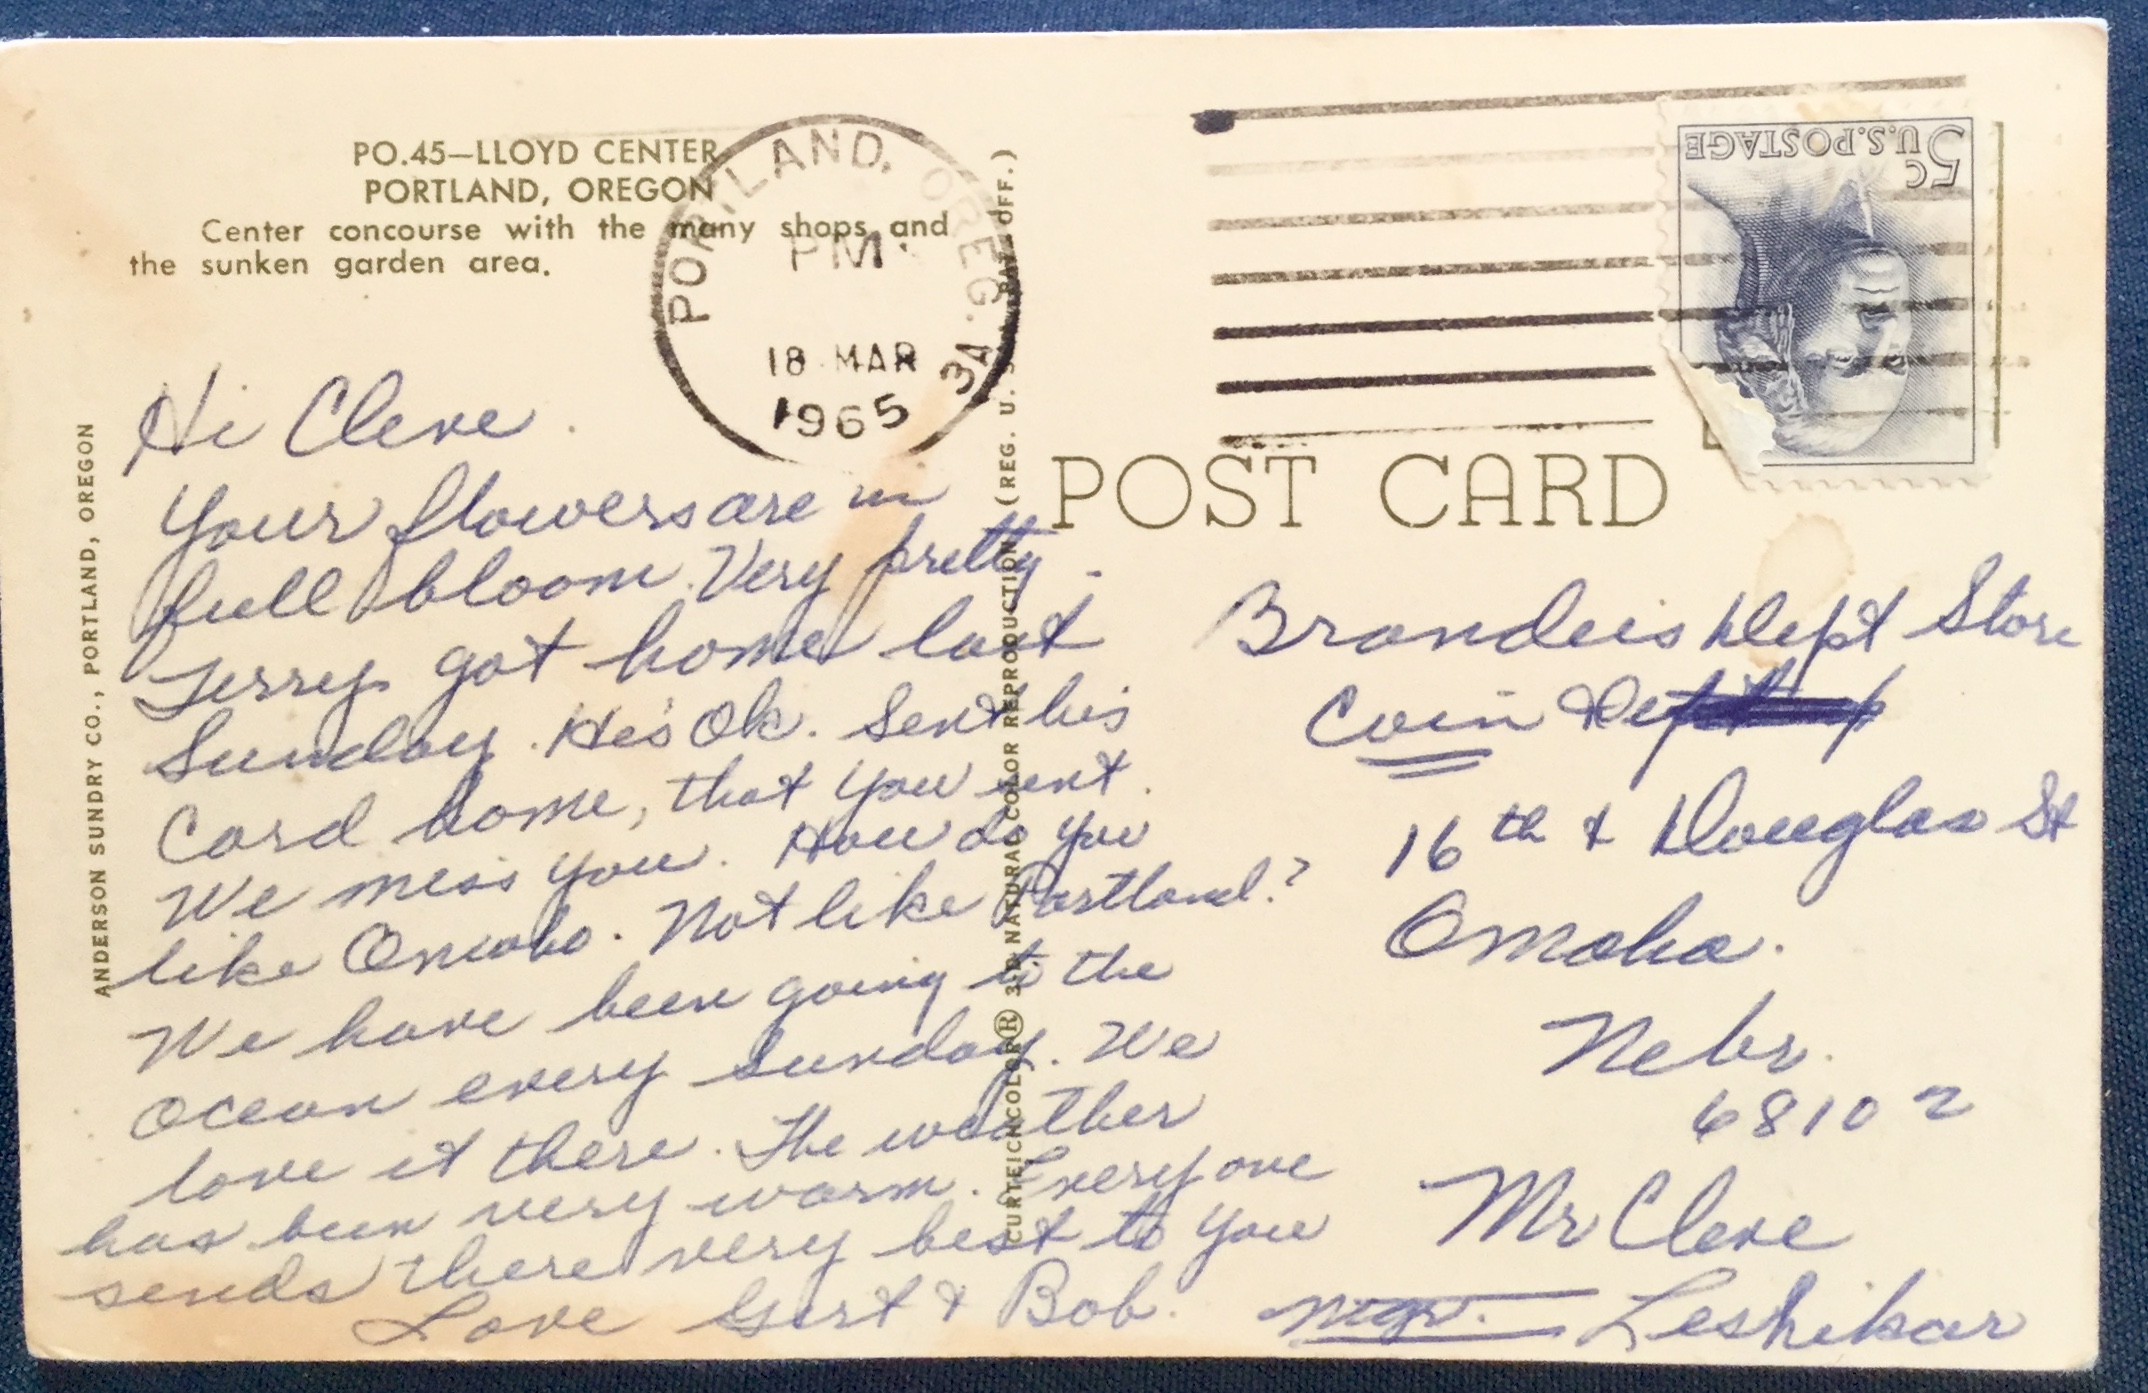 PO.45—LLOYD CENTER
PORTLAND, OREGON
Center concourse with the many shops and
the sunken garden area.
PORTLAND, OREG.
PM
18 MAR
1965
3A
5c
U.S. POSTAGE
POST CARD
ANDERSON SUNDRY CO., PORTLAND, OREGON
CURTEICHCOLOR® 3-D NATURAL COLOR REPRODUCTION (REG. U. S. PAT. OFF.)
Hi Cleve.
Your flowers are in
full bloom. Very pretty.
Jerry got home last
Sunday. He's Ok. Sent his
Card home, that you sent.
We miss you. How do you
like Omaha. Not like Portland?
We have been going to the
ocean every Sunday. We
love it there. The weather
has been very warm. Everyone
sends there very best to you
Love Gert & Bob.
Brandeis Dept Store
Coin Dept
16th & Douglas St
Omaha.
Nebr.
68102
Mr Cleve
mgr. Leshikar